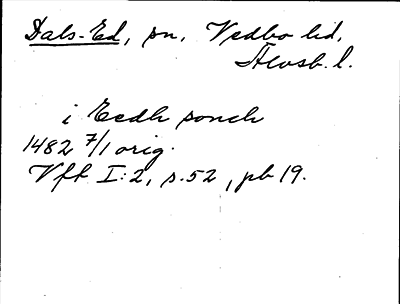 Dals-Ed, sn, Vedbo hd,
Älvsb. l.
i Eedh sonch
1482 7/1 orig.
Vfh I:2, s. 52, pb 19.